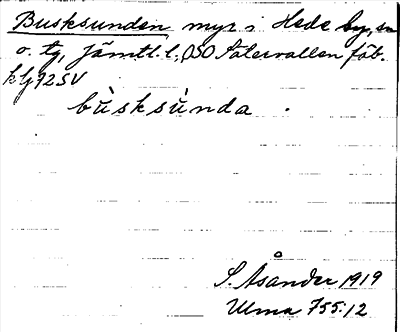 Buskesunden myr i Hede by, sn
o. tg, Jämtl. l., OSO Sätervallen fäb.
kbj 72SV
bùsksùnda .
S. Åsander 1919
Ulma 755:12